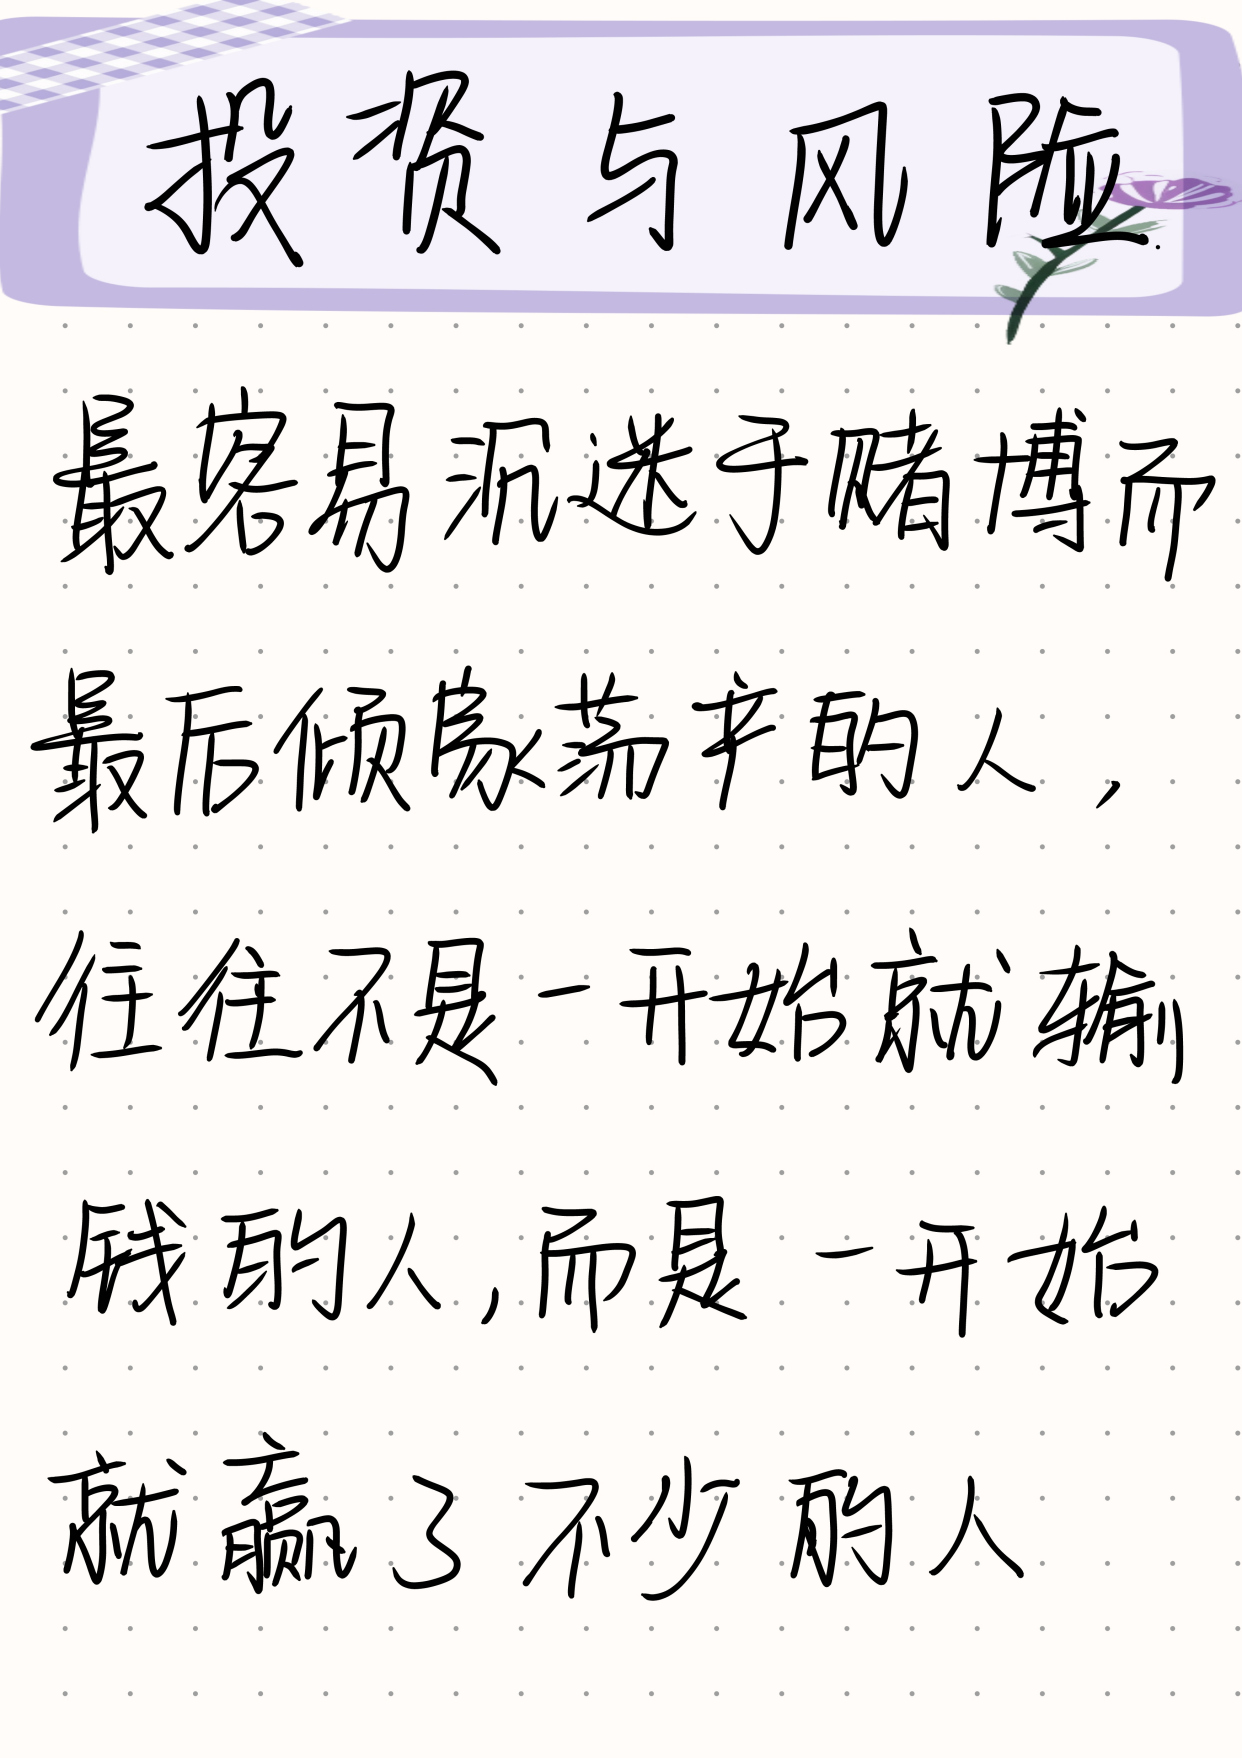 投资与风险
最容易沉迷于赌博而
最后倾家荡产的人，
往往不是一开始就输
钱的人，而是一开始
就赢了不少的人